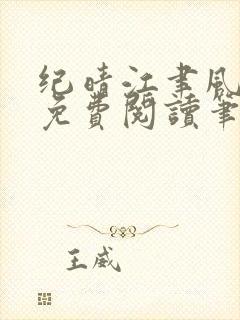 纪晴江聿风
免費閱讀筆
王威